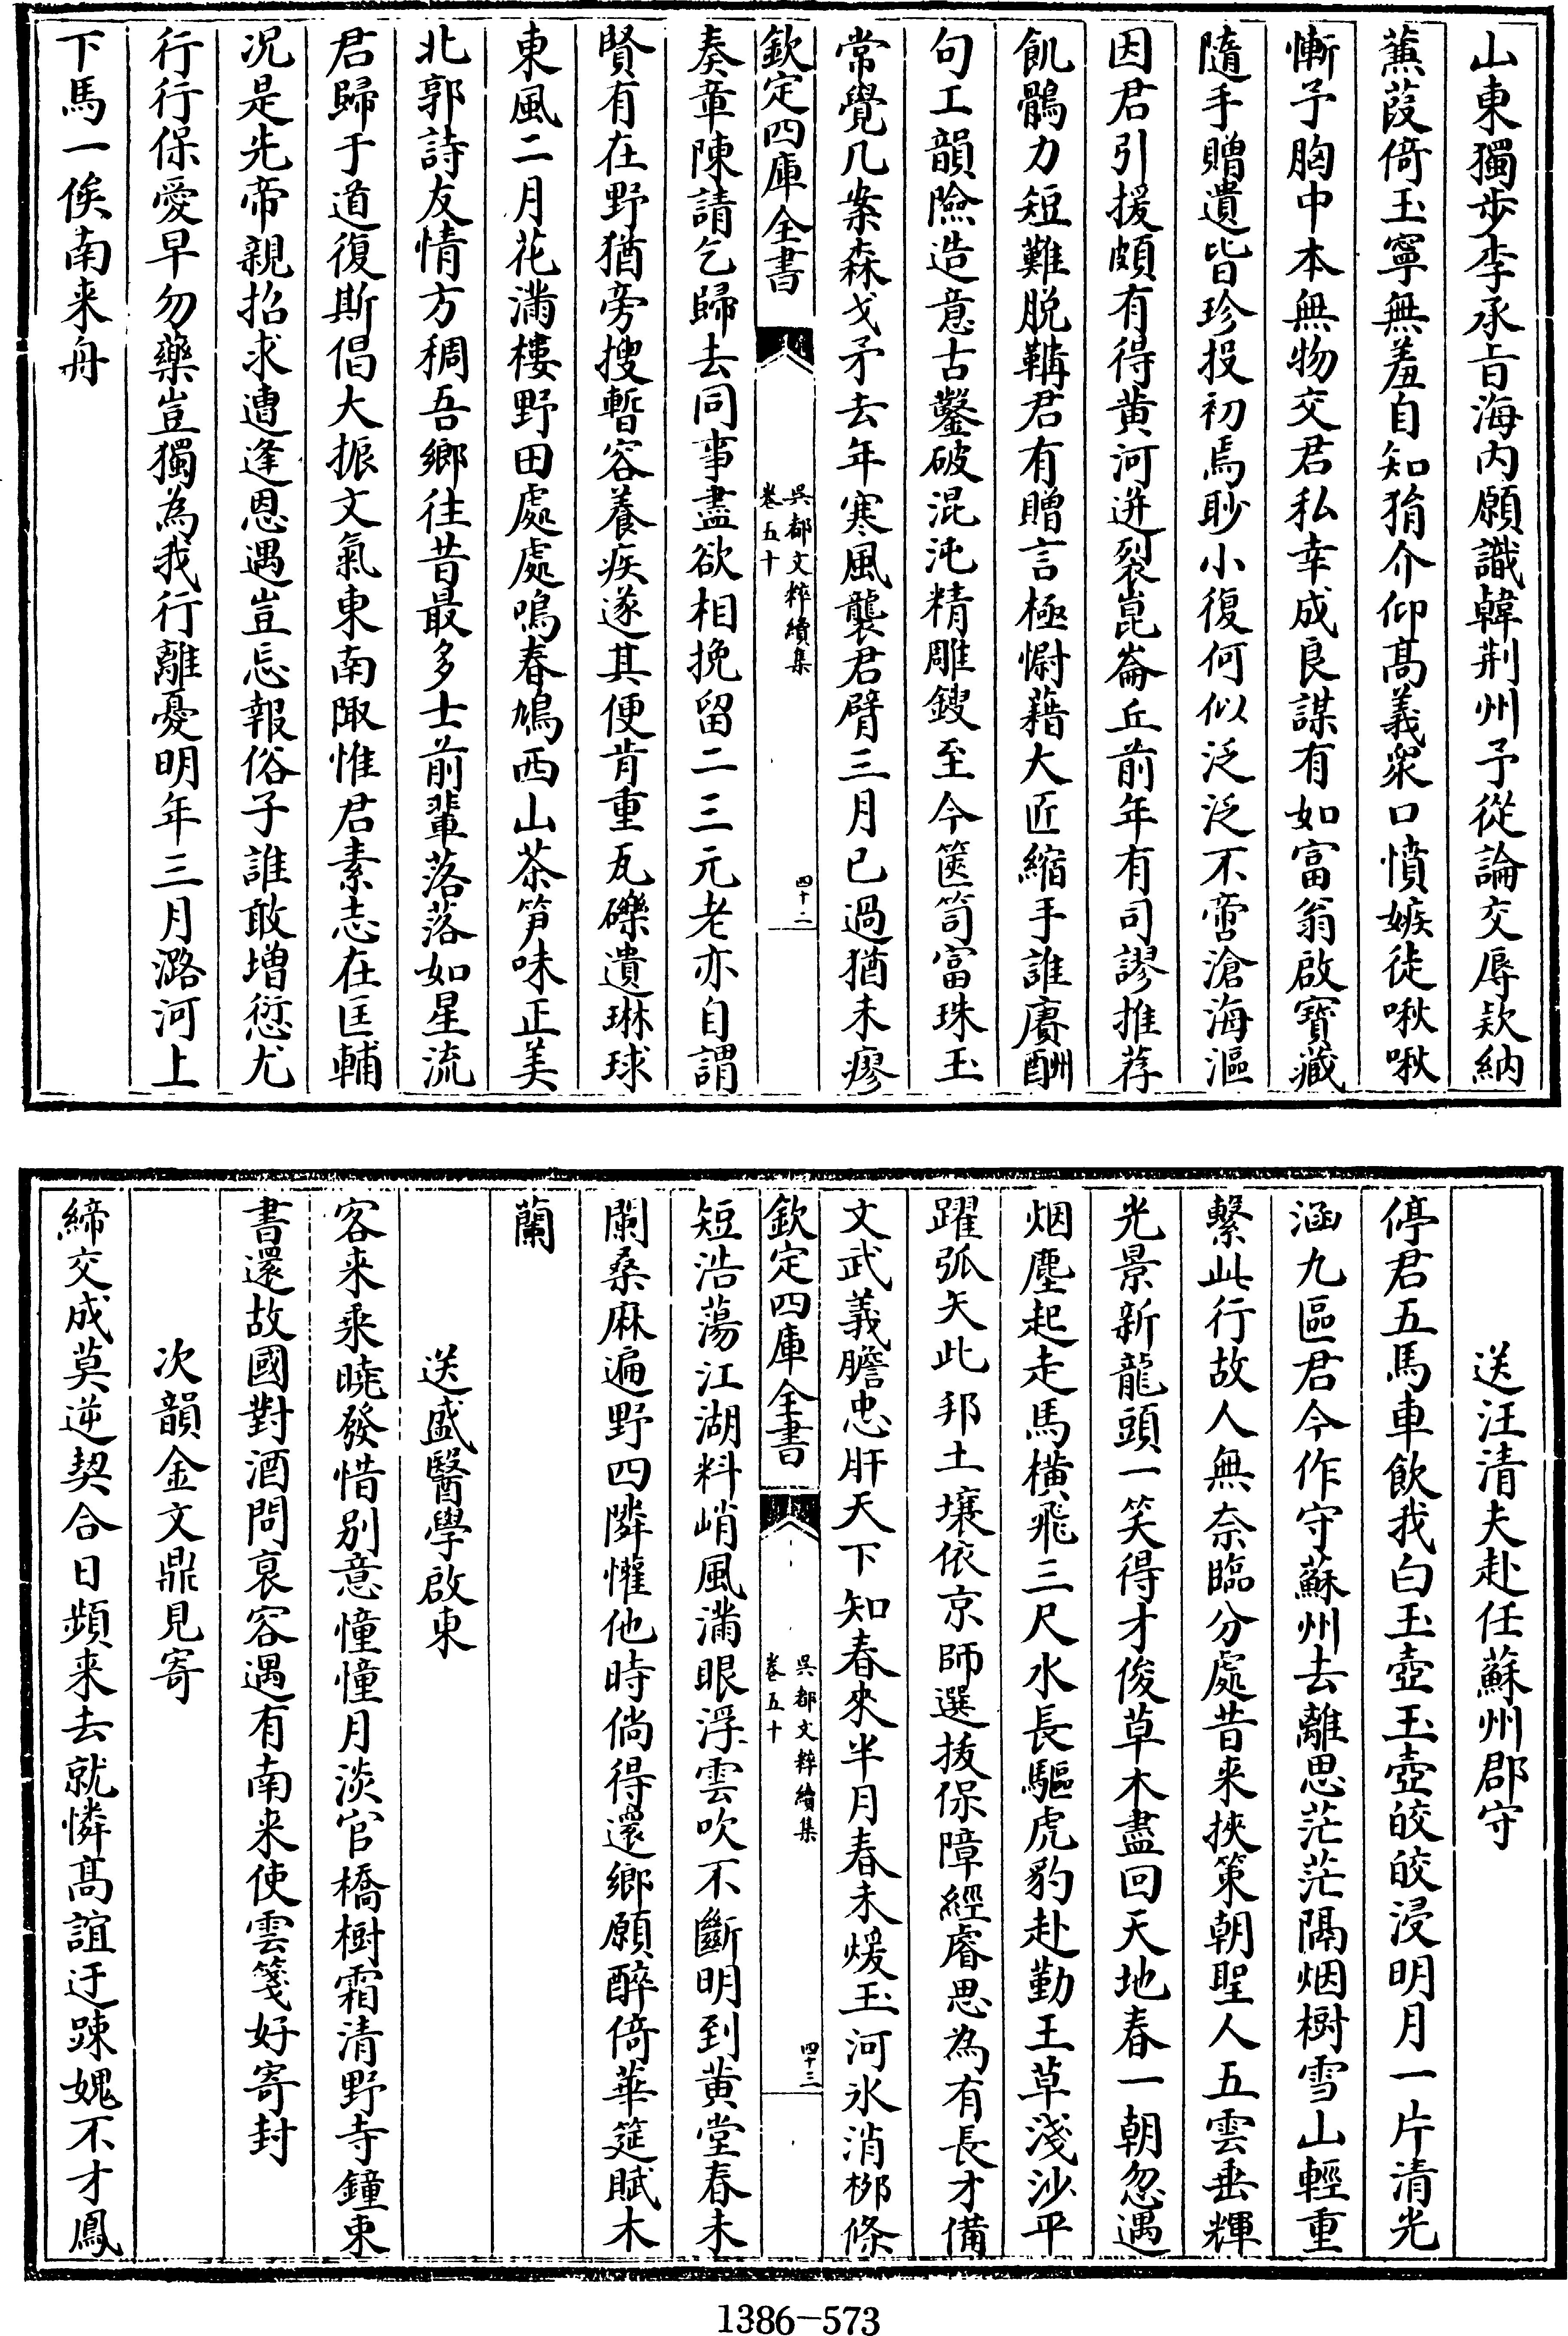 山東獨步李承旨海内願識韓荆州予從論交辱欵納
蒹葭倚玉寧無羞自知狷介仰髙義衆口憤嫉徒啾啾
慚予胸中本無物交君私幸成良謀有如富翁啟寶藏
隨手贈遺皆珍投初焉眇小復何似泛泛不啻滄海漚
因君引援頗有得黄河迸裂崑崙丘前年有司謬推荐
飢鶻力短難脱鞲君有贈言極慰藉大匠縮手誰賡酬
句工韻險造意古鑿破混沌精雕鎪至今篋笥富珠玉
常覺几案森戈矛去年寒風襲君臂三月已過猶未瘳
欽定四庫全書
吳都文粹續集
卷五十
四十二
奏章陳請乞歸去同事盡欲相挽留二三元老亦自謂
賢有在野猶旁搜暫容養疾遂其便肯重瓦礫遺琳球
東風二月花滿樓野田處處鳴春鳩西山茶笋味正美
北郭詩友情方稠吾鄉往昔最多士前輩落落如星流
君歸于道復斯倡大振文氣東南陬惟君素志在匡輔
况是先帝親招求遭逢恩遇豈忘報俗子誰敢增愆尤
行行保愛早勿藥豈獨為我行離憂明年三月潞河上
下馬一俟南来舟
送汪清夫赴任蘇州郡守
停君五馬車飲我白玉壺玉壺皎皎浸明月一片清光
涵九區君今作守蘇州去離思茫茫隔烟樹雪山輕重
繫此行故人無奈臨分處昔来挾策朝聖人五雲垂輝
光景新龍頭一笑得才俊草木盡回天地春一朝忽遇
烟塵起走馬横飛三尺水長驅虎豹赴勤王草淺沙平
躍弧矢此邦土壤依京師選抜保障經睿思為有長才備
文武義膽忠肝天下知春來半月春未煖玉河氷消栁條
欽定四庫全書
吳都文粹續集
卷五十
四十三
短浩蕩江湖料峭風滿眼浮雲吹不斷明到黄堂春未
闌桑麻遍野四隣懽他時倘得還鄉願醉倚華筵賦木
蘭
送盛醫學啟東
客来乘曉發惜别意憧憧月淡官橋樹霜清野寺鐘束
書還故國對酒問衰容遇有南来使雲箋好寄封
次韻金文鼎見寄
締交成莫逆契合日頻来去就憐髙誼迂踈媿不才鳳
1386-573